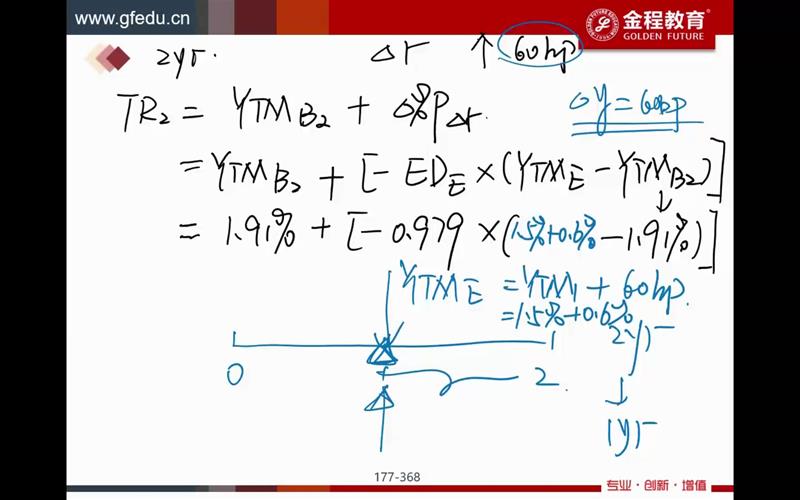 www.gfedu.cn
金程教育
GOLDEN FUTURE
2yr. Δr ↑ 60bp
TR₂ = YTM_B₂ + Δ%P_Δr. Δy = 60bp
= YTM_B₂ + [- ED_E × (YTM_E - YTM_B₂)]
= 1.91% + [- 0.979 × (1.5%+0.6% - 1.91%)]
YTM_E = YTM₁ + 60bp.
= 1.5% + 0.6%
0 1 2yr
2 ↓
1yr
177-368
专业·创新·增值